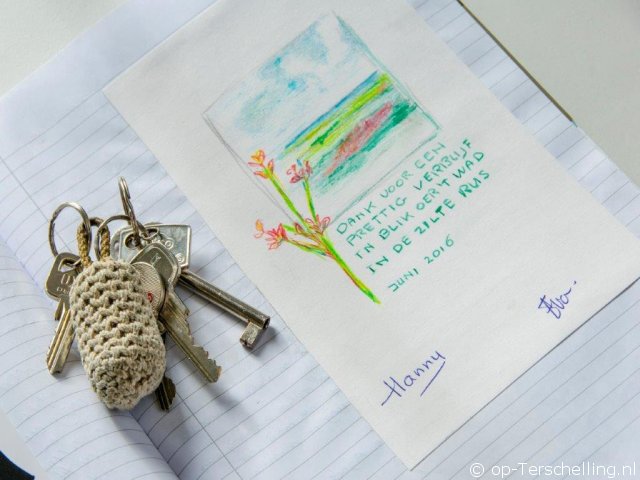 DANK VOOR EEN
PRETTIG VERBLIJF
IN BLIK OER'T WAD
IN DE ZILTE RUS
JUNI 2016
Hanny
© op-Terschelling.nl